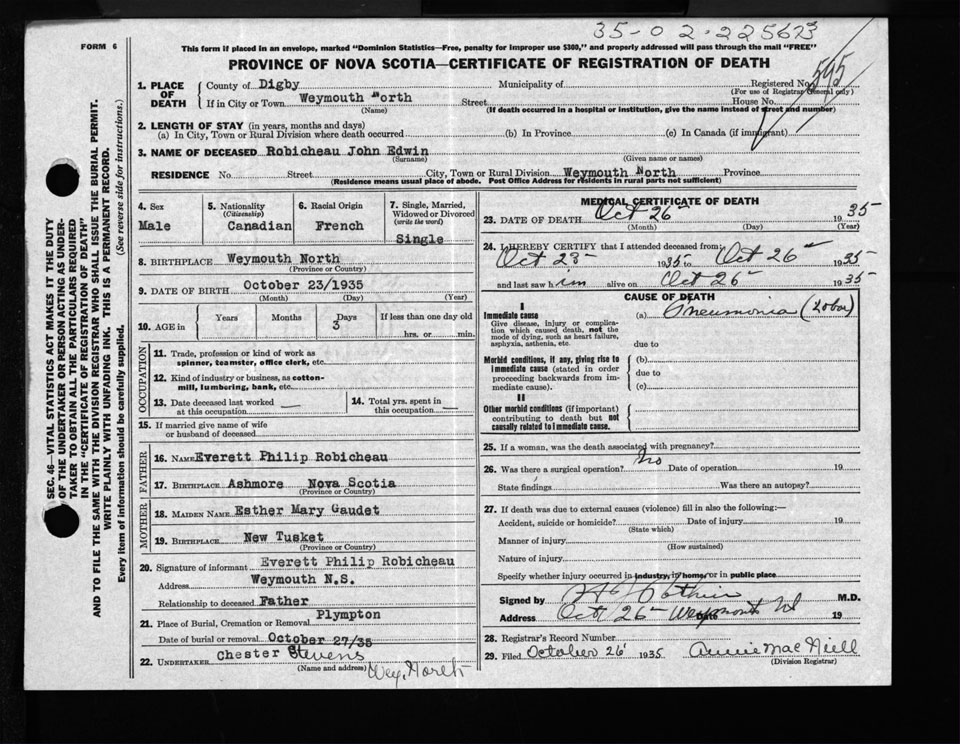 35-02-225673
FORM 6
This form if placed in an envelope, marked "Dominion Statistics—Free, penalty for improper use $300," and properly addressed will pass through the mail "FREE"
PROVINCE OF NOVA SCOTIA—CERTIFICATE OF REGISTRATION OF DEATH
595
SEC. 46—VITAL STATISTICS ACT MAKES IT THE DUTY
OF THE UNDERTAKER OR PERSON ACTING AS UNDER-
TAKER TO OBTAIN ALL THE PARTICULARS REQUIRED
IN THE "CERTIFICATE OF REGISTRATION OF DEATH"
AND TO FILE THE SAME WITH THE DIVISION REGISTRAR WHO SHALL ISSUE THE BURIAL PERMIT.
WRITE PLAINLY WITH UNFADING INK. THIS IS A PERMANENT RECORD.
Every item of information should be carefully supplied. (See reverse side for instructions.)
1. PLACE OF DEATH
County of Digby Municipality of Registered No.
(For use of Registrar General only)
If in City or Town Weymouth North Street House No.
(Name) (If death occurred in a hospital or institution, give the name instead of street and number)
2. LENGTH OF STAY (in years, months and days)
(a) In City, Town or Rural Division where death occurred (b) In Province (c) In Canada (if immigrant)
3. NAME OF DECEASED Robicheau John Edwin
(Surname) (Given name or names)
RESIDENCE No. Street City, Town or Rural Division Weymouth North Province
(Residence means usual place of abode. Post Office Address for residents in rural parts not sufficient)
4. Sex
Male
5. Nationality
(Citizenship)
Canadian
6. Racial Origin
French
7. Single, Married,
Widowed or Divorced
(write the word)
Single
8. BIRTHPLACE Weymouth North
(Province or Country)
9. DATE OF BIRTH October 23/1935
(Month) (Day) (Year)
10. AGE in
Years Months Days If less than one day old
3
hrs. or min.
OCCUPATION
11. Trade, profession or kind of work as
spinner, teamster, office clerk, etc.
12. Kind of industry or business, as cotton-
mill, lumbering, bank, etc.
13. Date deceased last worked
at this occupation —
14. Total yrs. spent in
this occupation —
15. If married give name of wife
or husband of deceased
FATHER
16. NAME Everett Philip Robicheau
17. BIRTHPLACE Ashmore Nova Scotia
(Province or Country)
MOTHER
18. MAIDEN NAME Esther Mary Gaudet
19. BIRTHPLACE New Tusket
(Province or Country)
20. Signature of informant Everett Philip Robicheau
Address Weymouth N.S.
Relationship to deceased Father
21. Place of Burial, Cremation or Removal Plympton
Date of burial or removal October 27/35
22. UNDERTAKER Chester Stevens
(Name and address) Wey. North
MEDICAL CERTIFICATE OF DEATH
23. DATE OF DEATH Oct 26 1935
(Month) (Day) (Year)
24. I HEREBY CERTIFY that I attended deceased from
Oct 23 1935 to Oct 26 1935
and last saw him alive on Oct 26 1935
CAUSE OF DEATH
I
Immediate cause
Give disease, injury or complica-
tion which caused death, not the
mode of dying, such as heart failure,
asphyxia, asthenia, etc.
(a) Pneumonia (Lobar)
due to
Morbid conditions, if any, giving rise to
immediate cause (stated in order
proceeding backwards from im-
mediate cause).
(b)
due to
(c)
II
Other morbid conditions (if important)
contributing to death but not
causally related to immediate cause.
25. If a woman, was the death associated with pregnancy?
26. Was there a surgical operation? No Date of operation 19
State findings Was there an autopsy?
27. If death was due to external causes (violence) fill in also the following:—
Accident, suicide or homicide? Date of injury 19
(State which)
Manner of injury
(How sustained)
Nature of injury
Specify whether injury occurred in industry, in home, or in public place
Signed by M.D.
Address Oct 26 Weymouth Date 19
28. Registrar's Record Number
29. Filed October 26 1935 Annie MacNiell
(Division Registrar)